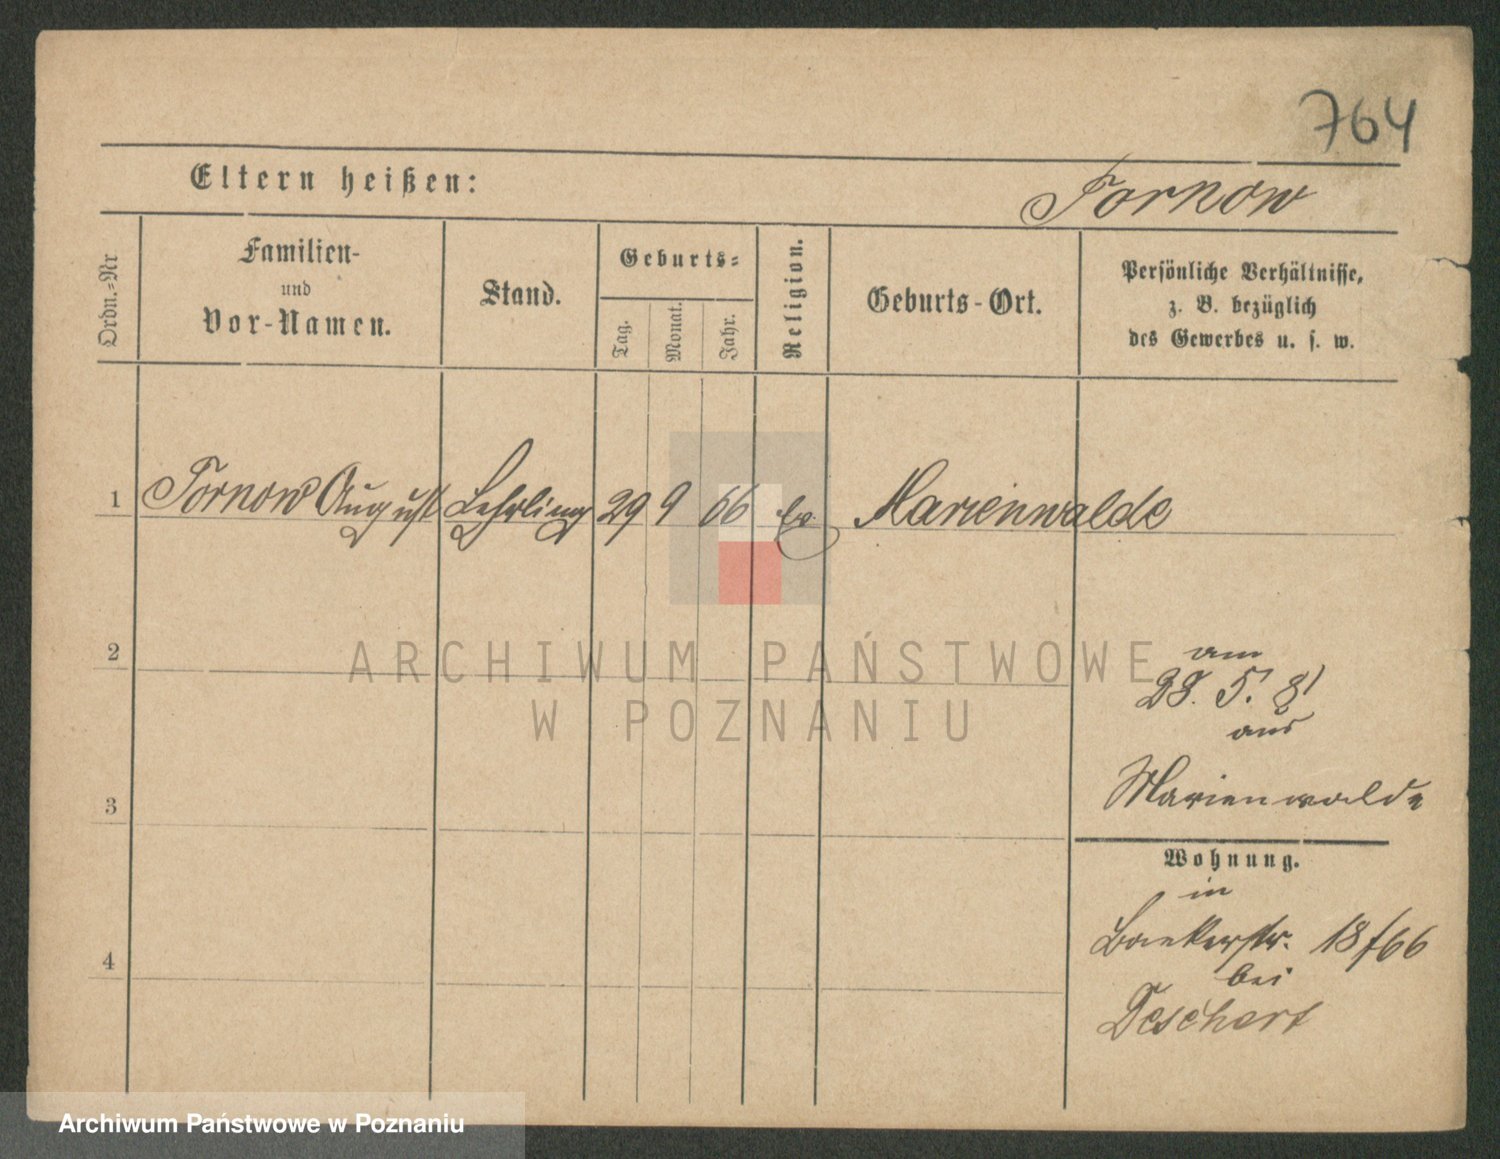 764
Eltern heißen:
Tornow
Ordn.=Nr
Familien-
und
Vor-Namen.
Stand.
Geburts=
Tag.
Monat.
Jahr.
Religion.
Geburts-Ort.
Persönliche Verhältnisse,
z. B. bezüglich
des Gewerbes u. s. w.
1 Tornow August Lehrling 29 9 66 ev. Marienwalde
2
am
28. 5. 81
aus
3
Marienwalde
Wohnung.
in
Baekerstr. 18/66
4
bei
Deschert
ARCHIWUM PAŃSTWOWE
W POZNANIU
Archiwum Państwowe w Poznaniu